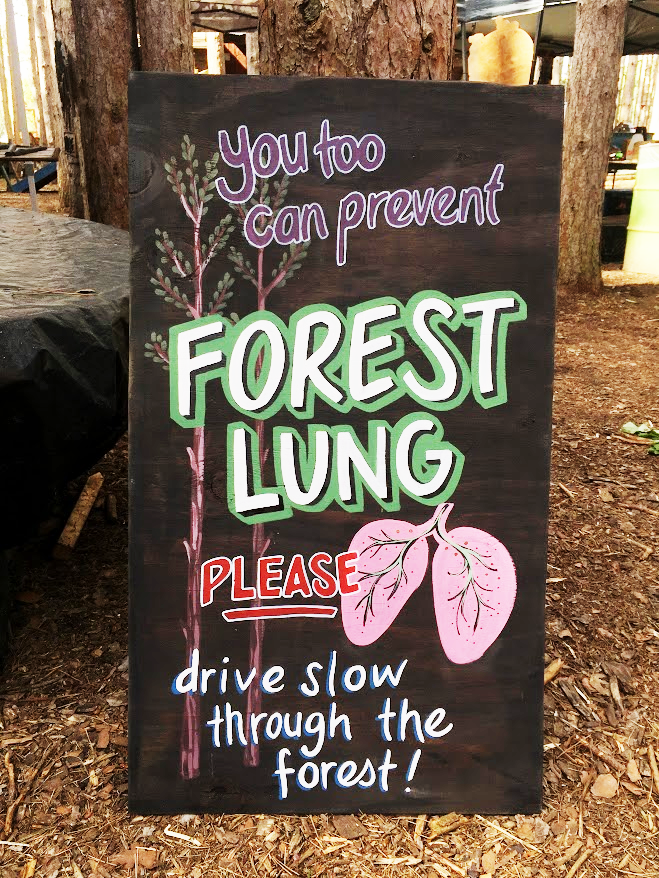 you too
can prevent
FOREST
LUNG
PLEASE
drive slow
through the
forest!